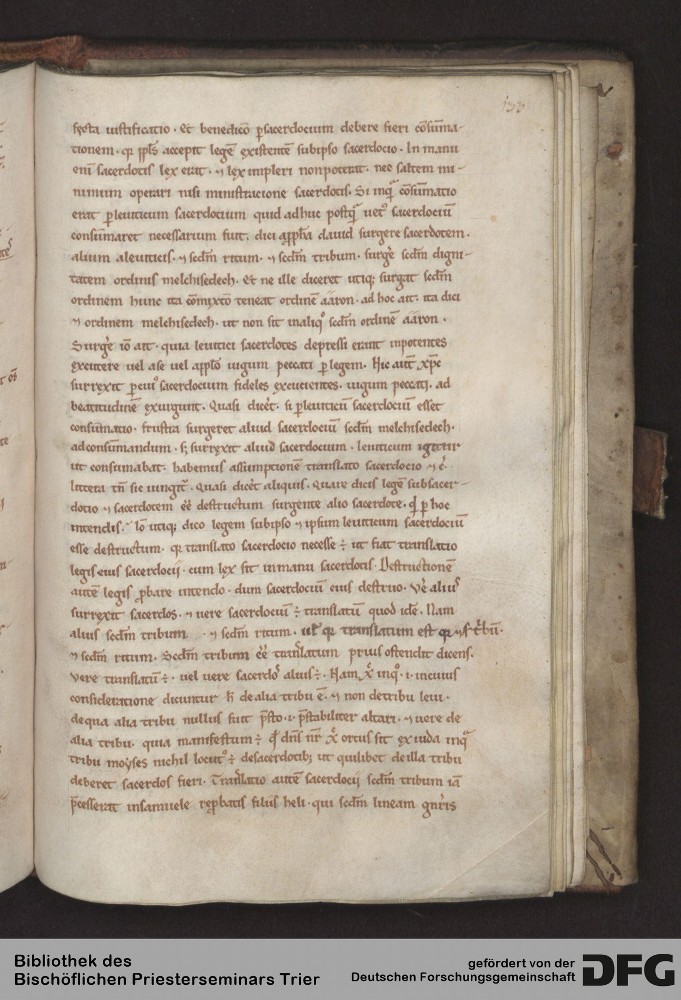 133
fęcta iustificatio · Et benedicō ꝑ sacerdocium debere fieri cōsūma-
tionem · qꝛ ppl̄s accepit legē existentē sub ipso sacerdocio · In manu
enī sacerdotis lex erat · ⁊ lex impleri non poterat · nec saltem mi-
nimum operari nisi ministracione sacerdotis · Si inq̄ consūmatio
erat ꝑ leuiticum sacerdocium quid adhuc postq̄ uet᷒ sacerdociū
consūmaret necessarium fuit · dici a ꝓph̄a dauid surgere sacerdotem ·
alium a leuiticis · ⁊ scd̄m ritum · ⁊ scd̄m tribum · surgē scd̄m digni-
tatem ordinis melchisedech · Et ne ille diceret utiq; surgat scd̄m
ordinem hunc ita cōmixtō teneat ordinē aaron · ad hoc ait · ita dici
⁊ ordinem melchisedech · ut non sit in aliq° scd̄m ordinē aaron ·
Surgē iō ait · quia leuitici sacerdotes depressi erant inpotentes
excutere uel a se uel a pplo iugum peccati ꝑ legem · Hic aut̄ xp̄c
surrexit ꝑ cui᷒ sacerdocium fideles excutientes · iugum peccati · ad
beatitudinē exurgunt · Quasi dicēt · si ꝑ leuiticū sacerdociū esset
consūmatio · frustra surgeret aliud sacerdociū scd̄m melchisedech ·
ad consūmandum · s; surrexit aliud sacerdocium · leuiticum igitur
ut consumabat · habemus assumptionē translato sacerdocio ⁊ c̄ ·
littera tn̄ sic iungit᷑ · Quasi dicēt aliquis · Quare dicis legē sub sacer-
dotio ⁊ sacerdotem ēē destructum surgente alio sacerdote · qd̄ ꝑ hoc
intendis · Iō utiq; dico legem sub ipso ⁊ ipsum leuiticum sacerdociū
esse destructum · qꝛ translato sacerdocio necesse ÷ ut fiat translatio
legis eius sacerdocii · cum lex sit in manu sacerdotis · Destructionē
autē legis ꝓbare intendo · dum sacerdociū eius destruo · Vē alius
surrexit sacerdos · ⁊ uere sacerdociū ÷ translatū quod idē · Nam
alius scd̄m tribum · ⁊ scd̄m ritum · ul̄ qꝛ translatum est
⁊ scd̄m ritum · Scd̄m tribum ēē trans̄latum prius ostendit dicens ·
Vere translatū ÷ · uel uere sacerdos alius ÷ · Nam x̄ inq° · i · in cuius
consideracione dicuntur h̄ de alia tribu ē · ⁊ non de tribu leui ·
de qua alia tribu nullus fuit p̄sto · i · p̄stabiliter altari · ⁊ uere de
alia tribu · quia manifestum ÷ qd̄ dn̄s nr̄ x̄ ortus sit ex iuda inq̄
tribu moyses nichil locut᷒ ÷ de sacerdotib; ut quilibet de illa tribu
deberet sacerdos fieri · Trans̄latio autē sacerdocij scd̄m tribum iā
p̄cesserat in samuele reꝓbatis filiis heli · qui scd̄m lineam gn̄ris
Bibliothek des
Bischöflichen Priesterseminars Trier
gefördert von der
Deutschen Forschungsgemeinschaft
DFG